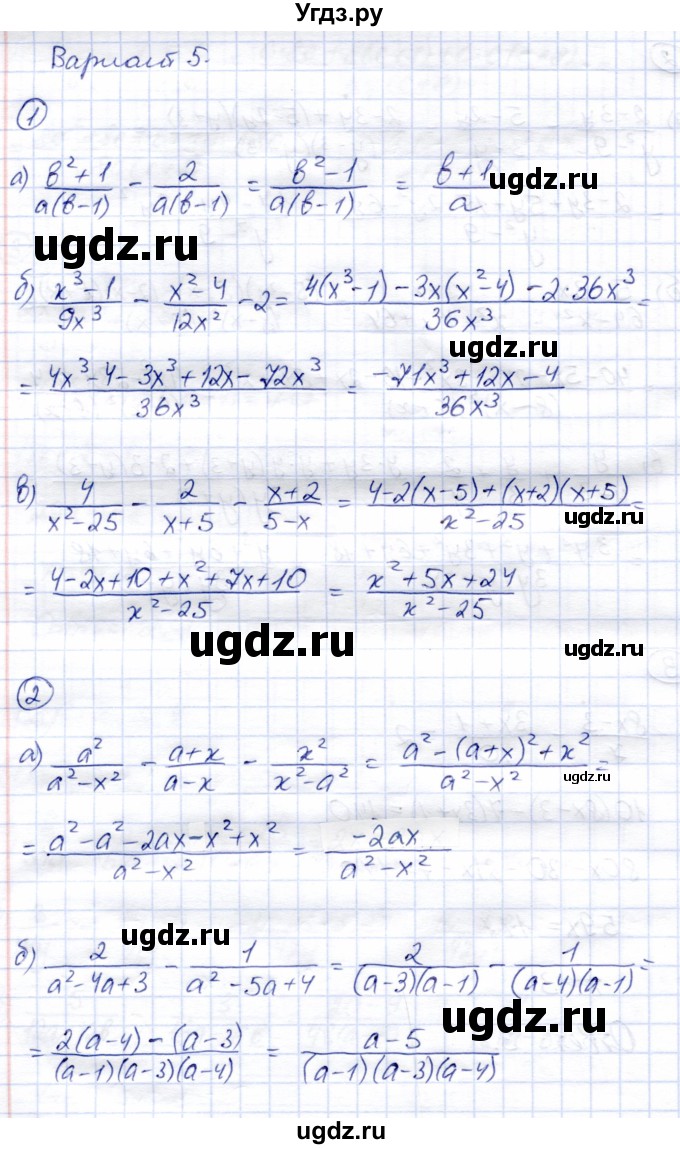 Угдз.ру
Вариант 5.
1
а) (в²+1)/(а(в−1)) − 2/(а(в−1)) = (в²−1)/(а(в−1)) = (в+1)/а
ugdz.ru
ugdz.ru
б) (x³−1)/(9x³) − (x²−4)/(12x²) − 2 = (4(x³−1) − 3x(x²−4) − 2·36x³)/(36x³) =
ugdz.ru
= (4x³−4−3x³+12x−72x³)/(36x³) = (−71x³+12x−4)/(36x³)
в) 4/(x²−25) − 2/(x+5) − (x+2)/(5−x) = (4−2(x−5)+(x+2)(x+5))/(x²−25) =
ugdz.ru
= (4−2x+10+x²+7x+10)/(x²−25) = (x²+5x+24)/(x²−25)
ugdz.ru
ugdz.ru
2
а) a²/(a²−x²) − (a+x)/(a−x) − x²/(x²−a²) = (a²−(a+x)²+x²)/(a²−x²) =
ugdz.ru
= (a²−a²−2ax−x²+x²)/(a²−x²) = (−2ax)/(a²−x²)
ugdz.ru
б) 2/(a²−4a+3) − 1/(a²−5a+4) = 2/((a−3)(a−1)) − 1/((a−4)(a−1)) =
ugdz.ru
= (2(a−4)−(a−3))/((a−1)(a−3)(a−4)) = (a−5)/((a−1)(a−3)(a−4))
ugdz.ru